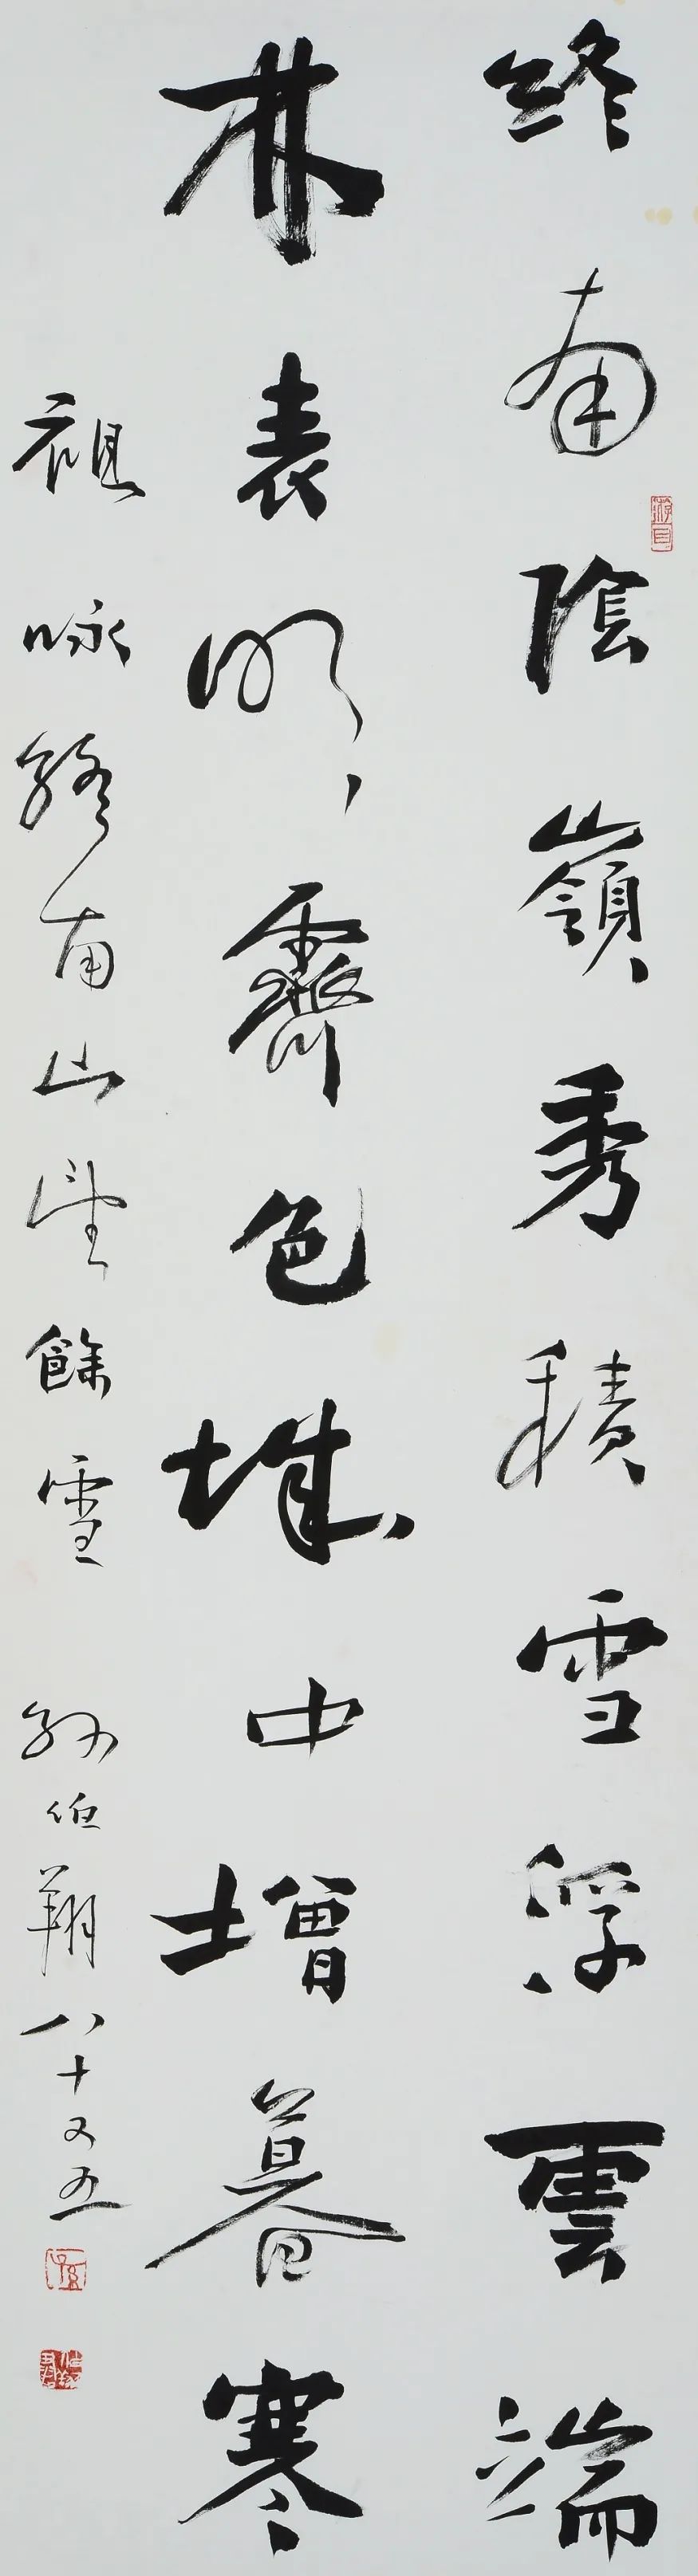 終南陰嶺秀積雪浮雲端
林表明霽色城中增暮寒
祖咏終南山望餘雪 孫伯翔八十又五
游目
孫